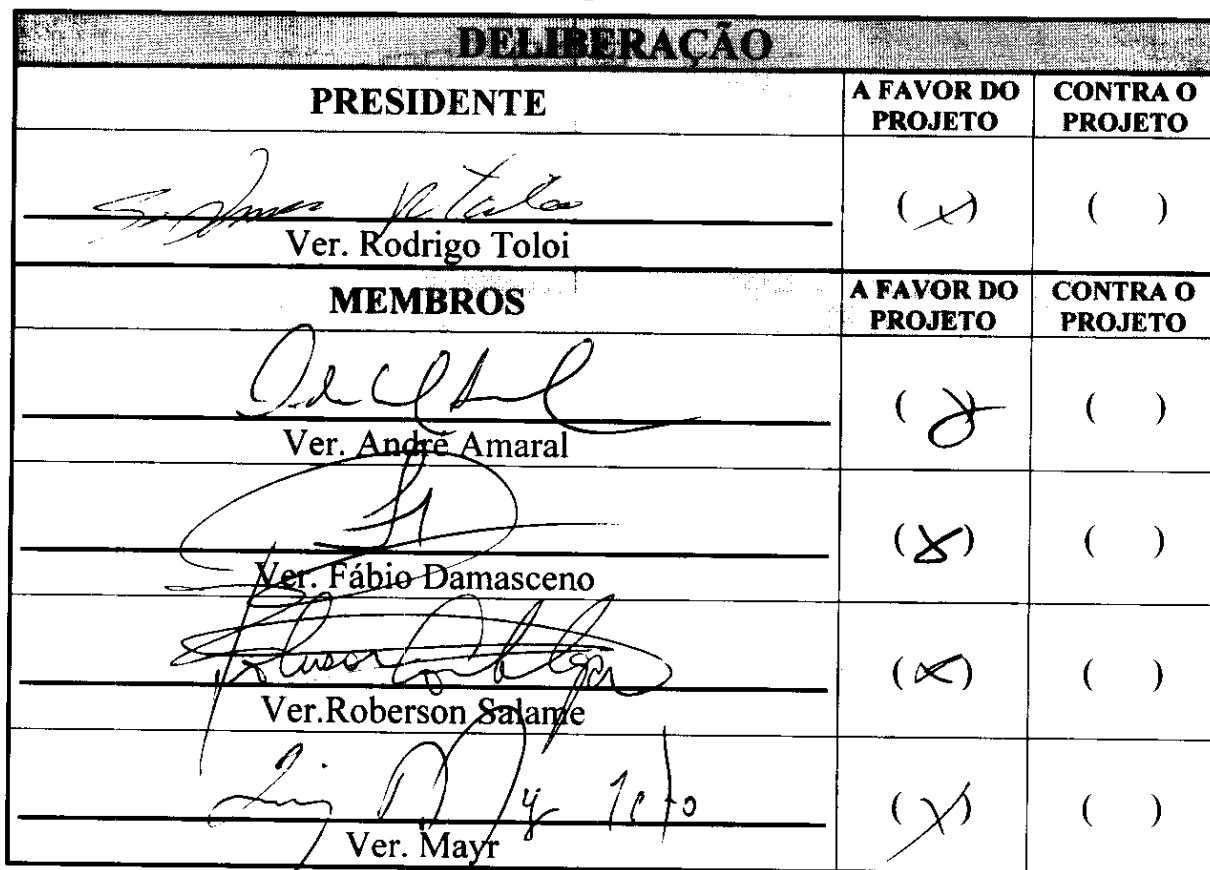 DELIBERAÇÃO
PRESIDENTE A FAVOR DO PROJETO CONTRA O PROJETO
(x) ( )
Ver. Rodrigo Toloi
MEMBROS A FAVOR DO PROJETO CONTRA O PROJETO
(x) ( )
Ver. André Amaral
(x) ( )
Ver. Fábio Damasceno
(x) ( )
Ver.Roberson Salame
(x) ( )
Ver. Mayr